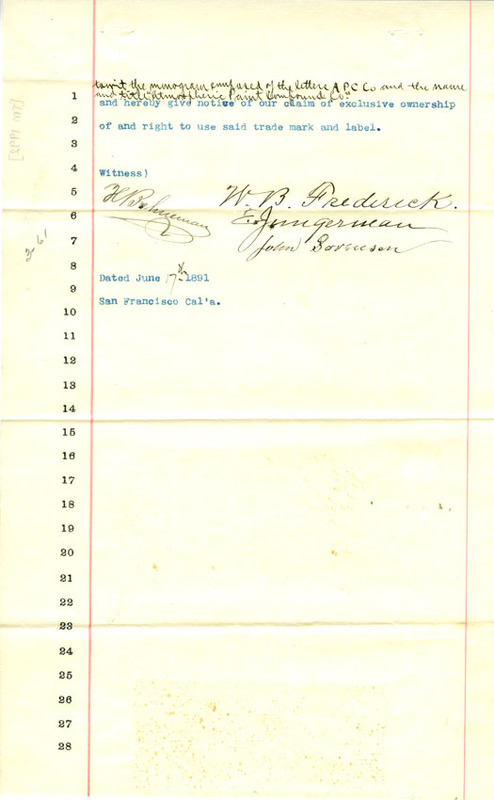 to wit the monogram composed of the letters A P C Co and the name
and title Atmospheric Paint Compound Co
1 and hereby give notice of our claim of exclusive ownership
2 of and right to use said trade mark and label.
3
4 Witness)
5 W. B. Frederick.
6 E. Jungerman
7 John Sorenson
8 Dated June 17th 1891
9 San Francisco Cal'a.
10
11
12
13
14
15
16
17
18
19
20
21
22
23
24
25
26
27
28